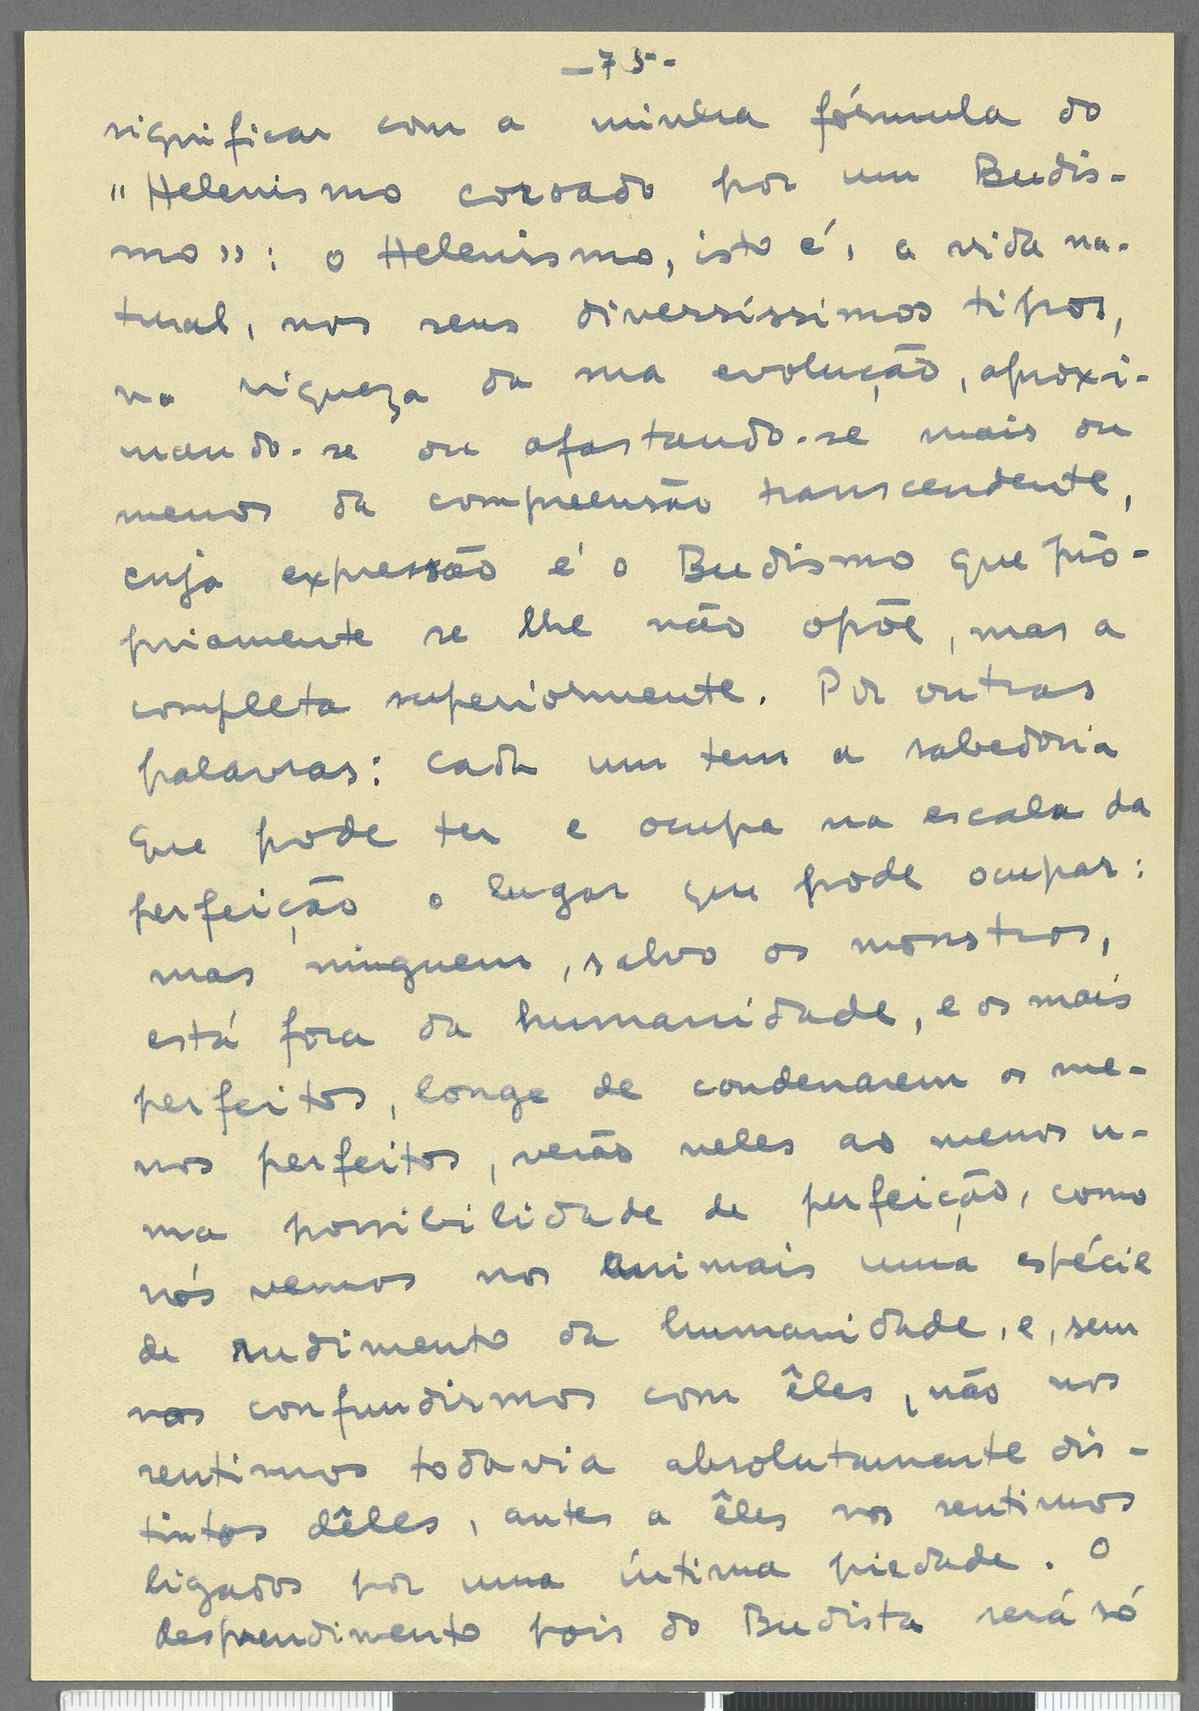 -75-
significar com a minha fórmula do
"Helenismo coroado por um Budis-
mo": o Helenismo, isto é, a vida na-
tural, nos seus diversíssimos tipos,
na riqueza da sua evolução, aproxi-
mando-se ou afastando-se mais ou
menos da compreensão transcendente,
cuja expressão é o Budismo que prò-
priamente se lhe não opõe, mas a
completa superiormente. Por outras
palavras: cada um tem a sabedoria
que pode ter e ocupa na escala da
perfeição o lugar que pode ocupar:
mas ninguem, salvo os monstros,
está fora da humanidade, e os mais
perfeitos, longe de condenarem os me-
nos perfeitos, verão neles ao menos u-
ma possibilidade de perfeição, como
nós vemos nos animais uma espécie
de rudimento da humanidade, e, sem
nos confundirmos com êles, não nos
sentimos todavia absolutamente dis-
tintos dêles, antes a êles nos sentimos
ligados por uma íntima piedade. O
desprendimento pois do Budista será só